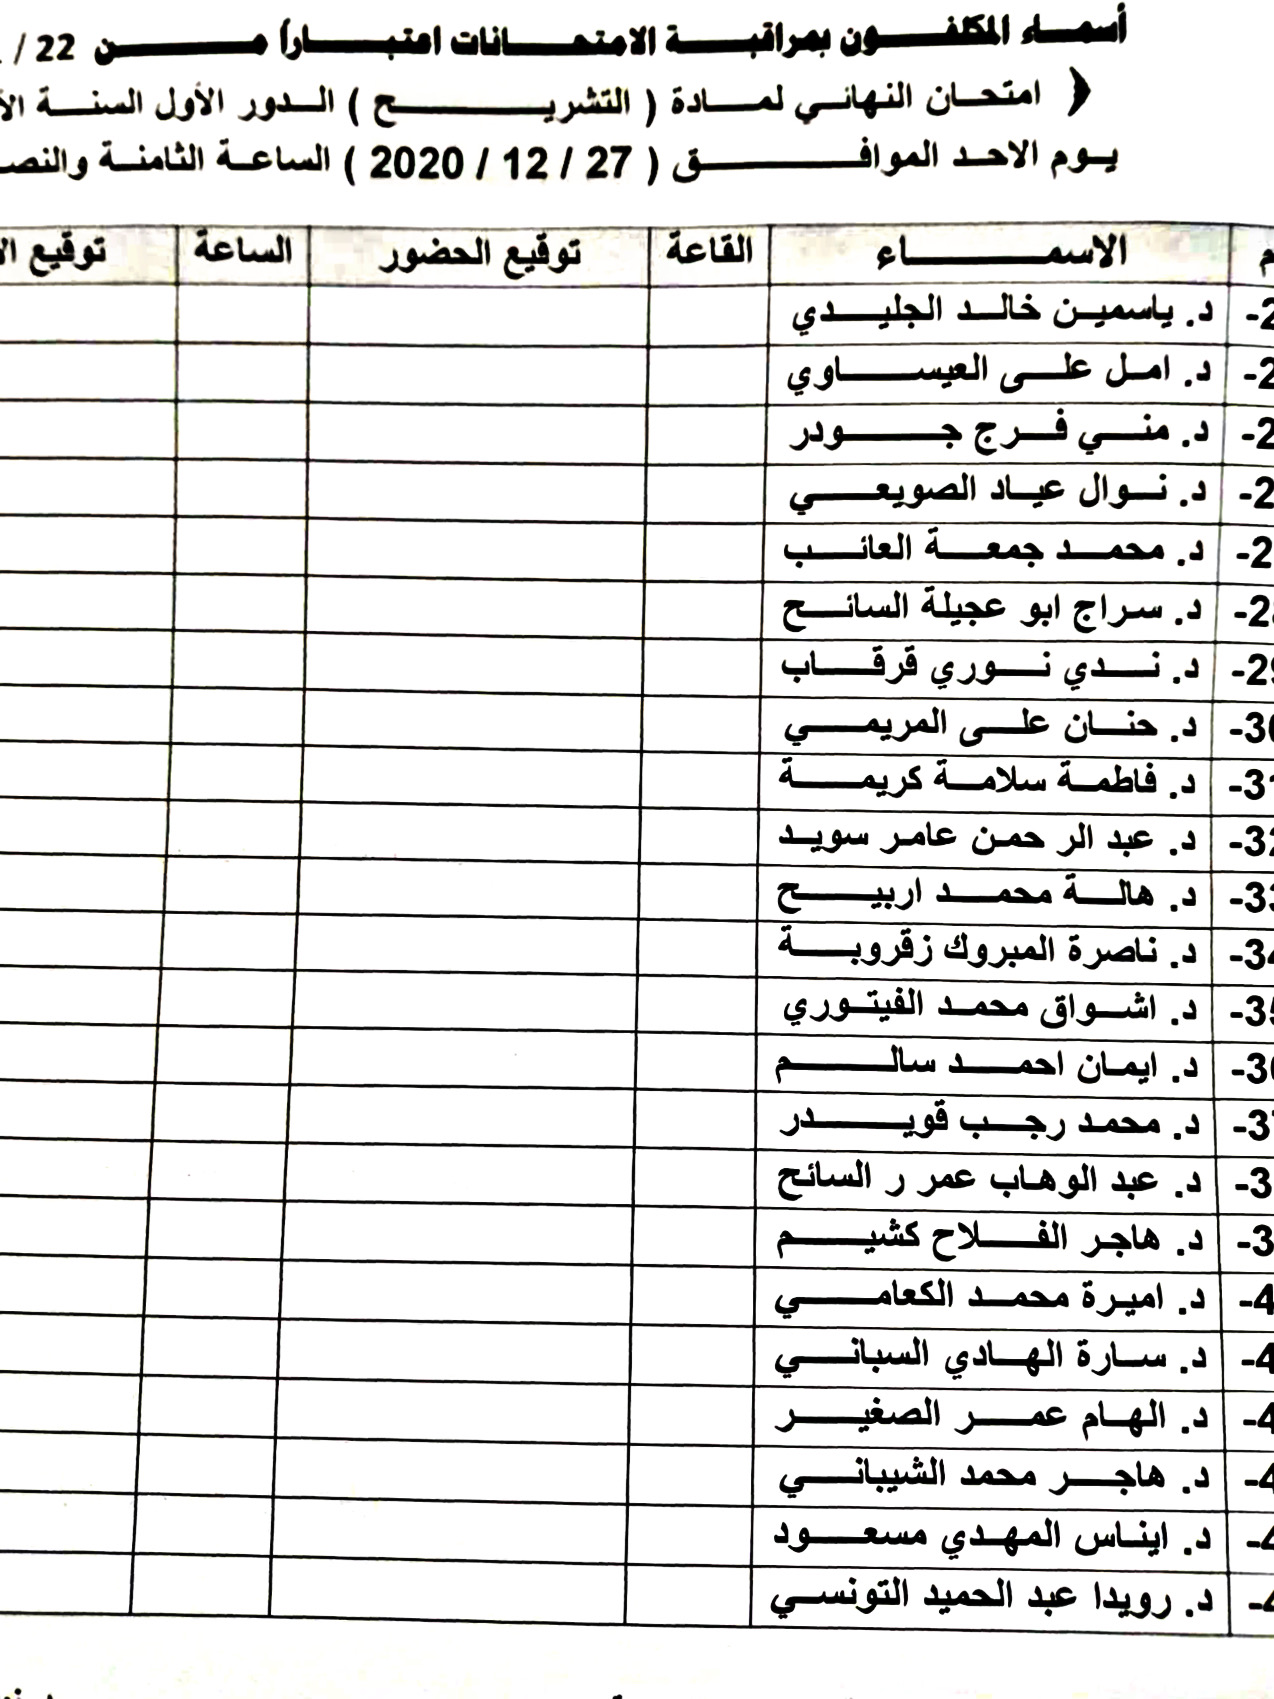 أسماء المكلفون بمراقبة الامتحانات اعتباراً من 22 /
امتحان النهائي لمادة ( التشريح ) الدور الأول السنة
يوم الاحد الموافق ( 27 / 12 / 2020 ) الساعة الثامنة
م الاسماء القاعة توقيع الحضور الساعة توقيع
د. ياسمين خالد الجليدي
د. امل على العيساوي
د. مني فرج جودر
د. نوال عياد الصويعي
د. محمد جمعة العائب
د. سراج ابو عجيلة السائح
29- د. ندي نوري قرقاب
30- د. حنان على المريمي
31- د. فاطمة سلامة كريمة
32- د. عبد الر حمن عامر سويد
33- د. هالة محمد اربيح
34- د. ناصرة المبروك زقروبة
35- د. اشواق محمد الفيتوري
36- د. ايمان احمد سالم
37- د. محمد رجب قويدر
د. عبد الوهاب عمر ر السائح
د. هاجر الفلاح كشيم
د. اميرة محمد الكعامي
د. سارة الهادي السباني
د. الهام عمر الصغير
د. هاجر محمد الشيباني
د. ايناس المهدي مسعود
د. رويدا عبد الحميد التونسي